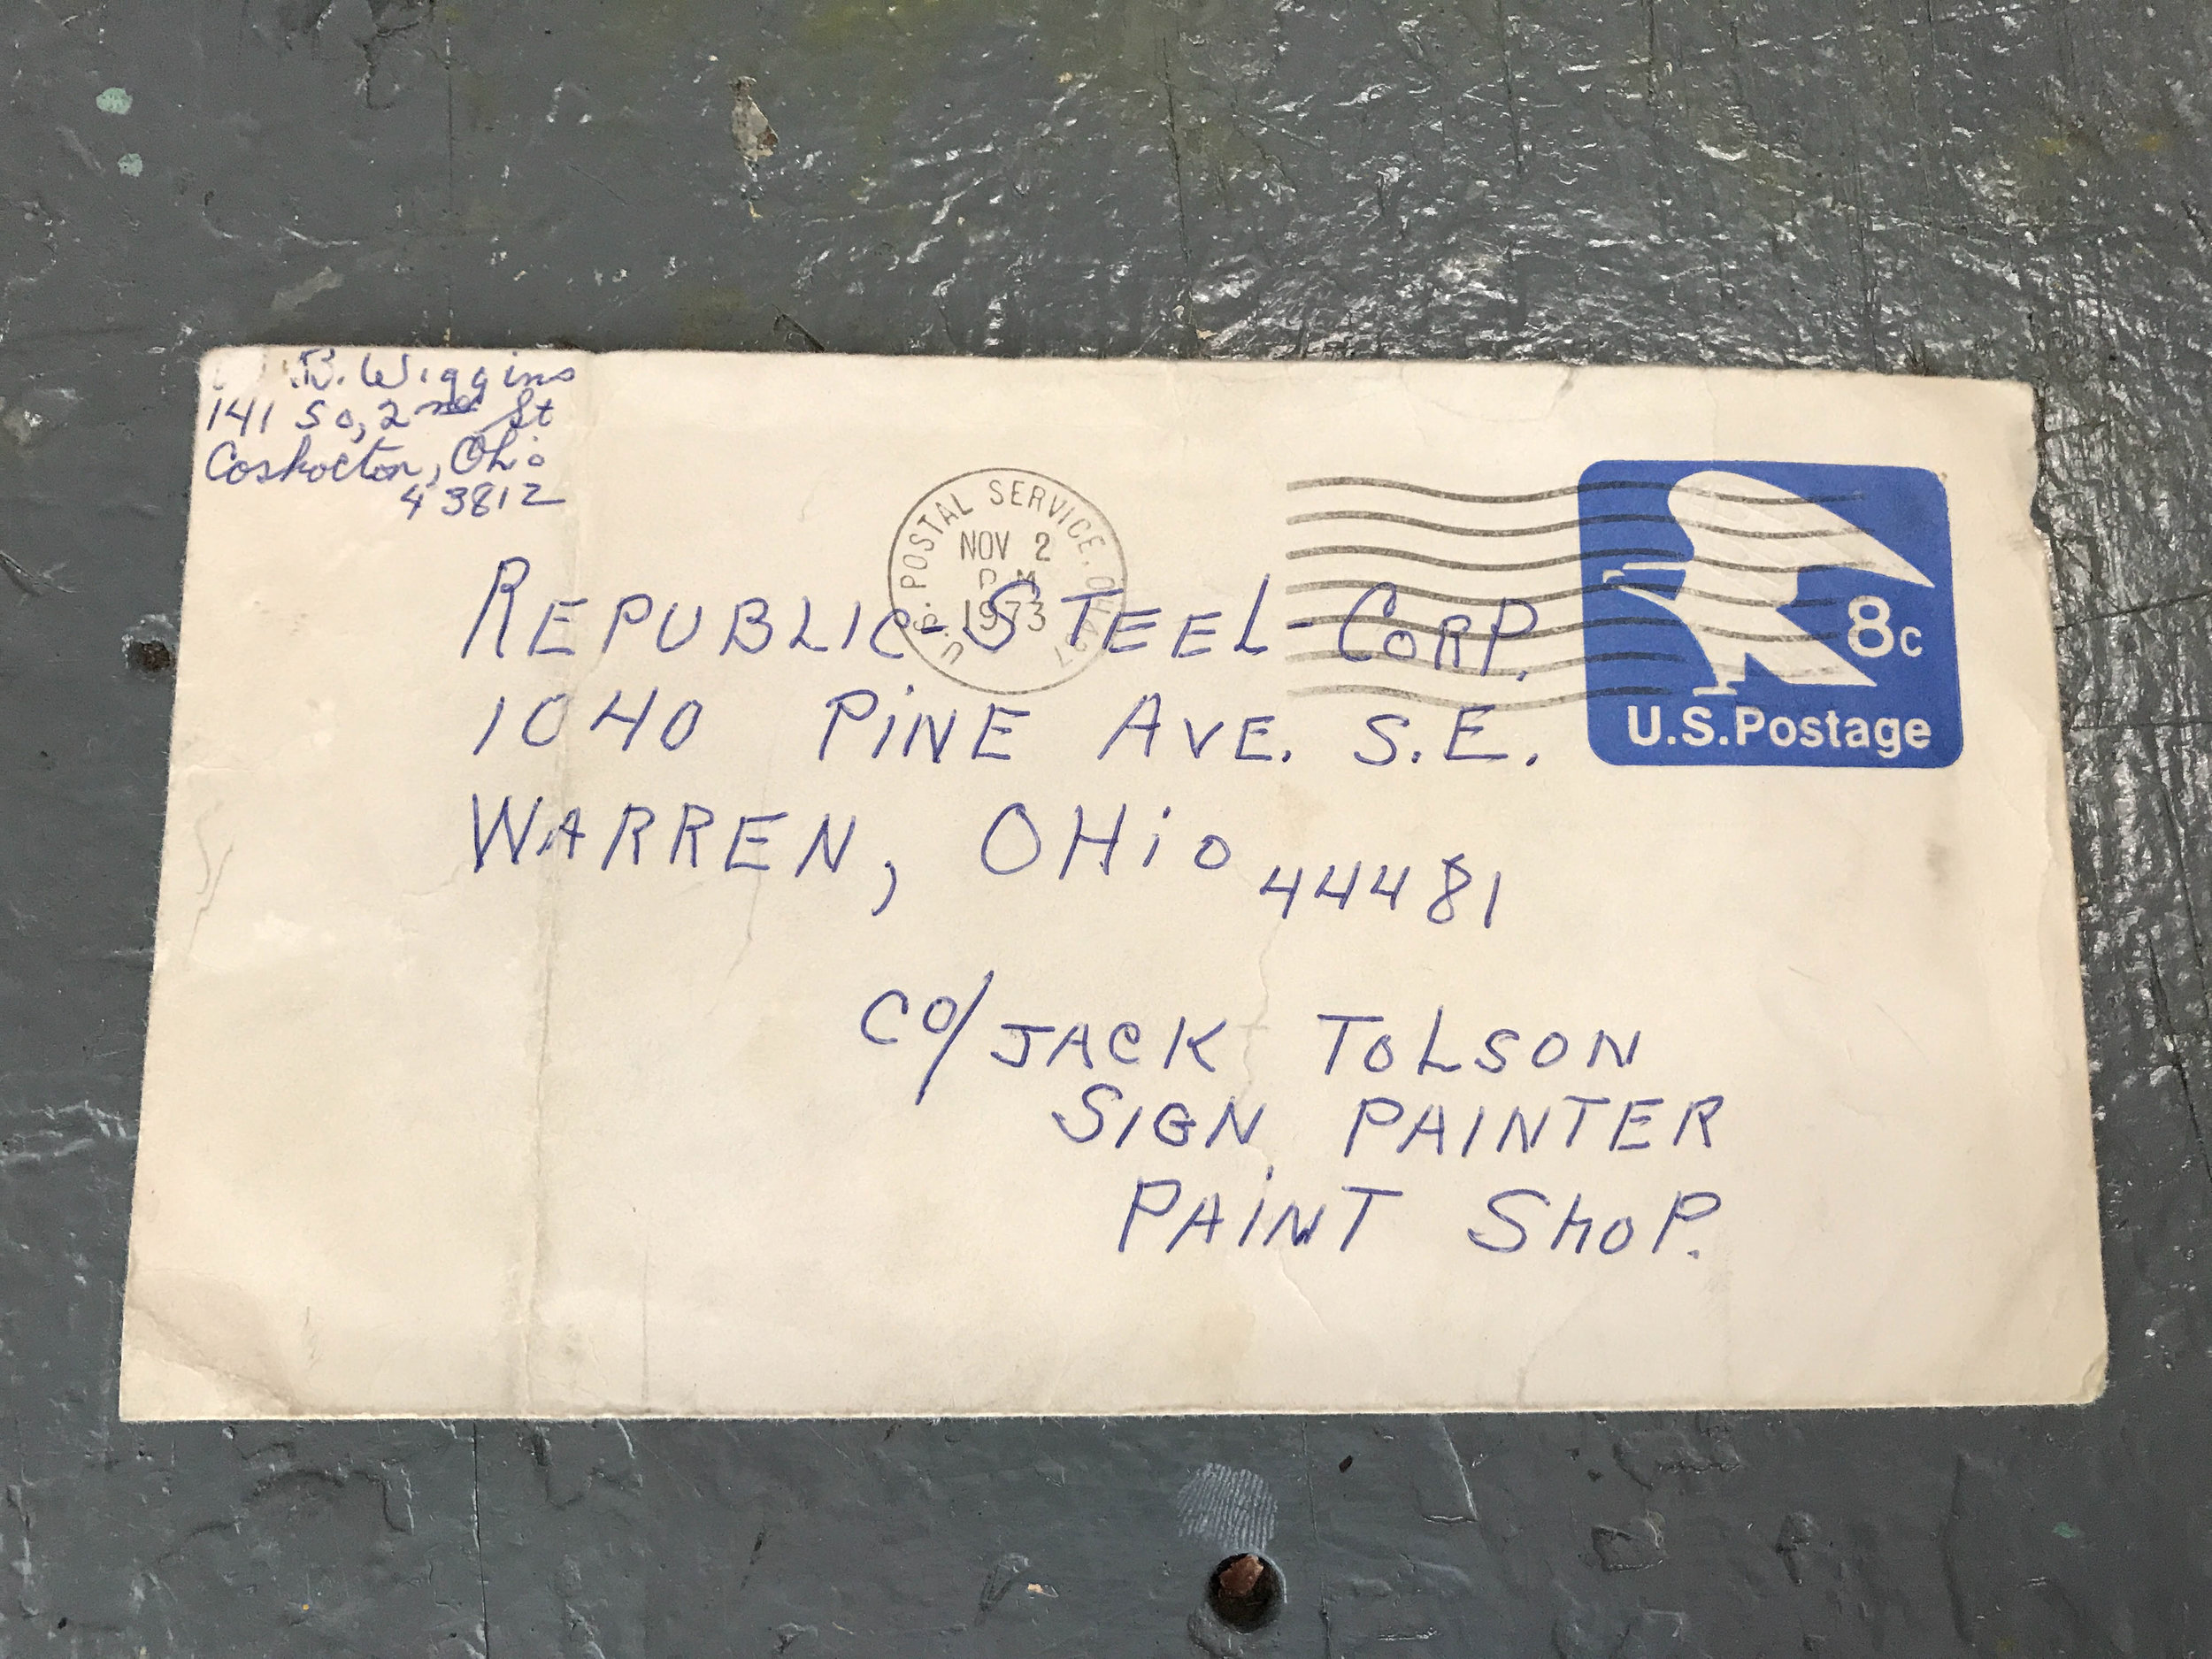 B. Wiggins
141 So, 2nd St
Coshocton, Ohio
43812
U.S. POSTAL SERVICE, OH
NOV 2
PM
1973
8c
U.S. Postage
REPUBLIC-STEEL-CORP.
1040 PINE AVE. S.E.
WARREN, OHiO 44481
CO/JACK TOLSON
SIGN PAINTER
PAINT SHOP.